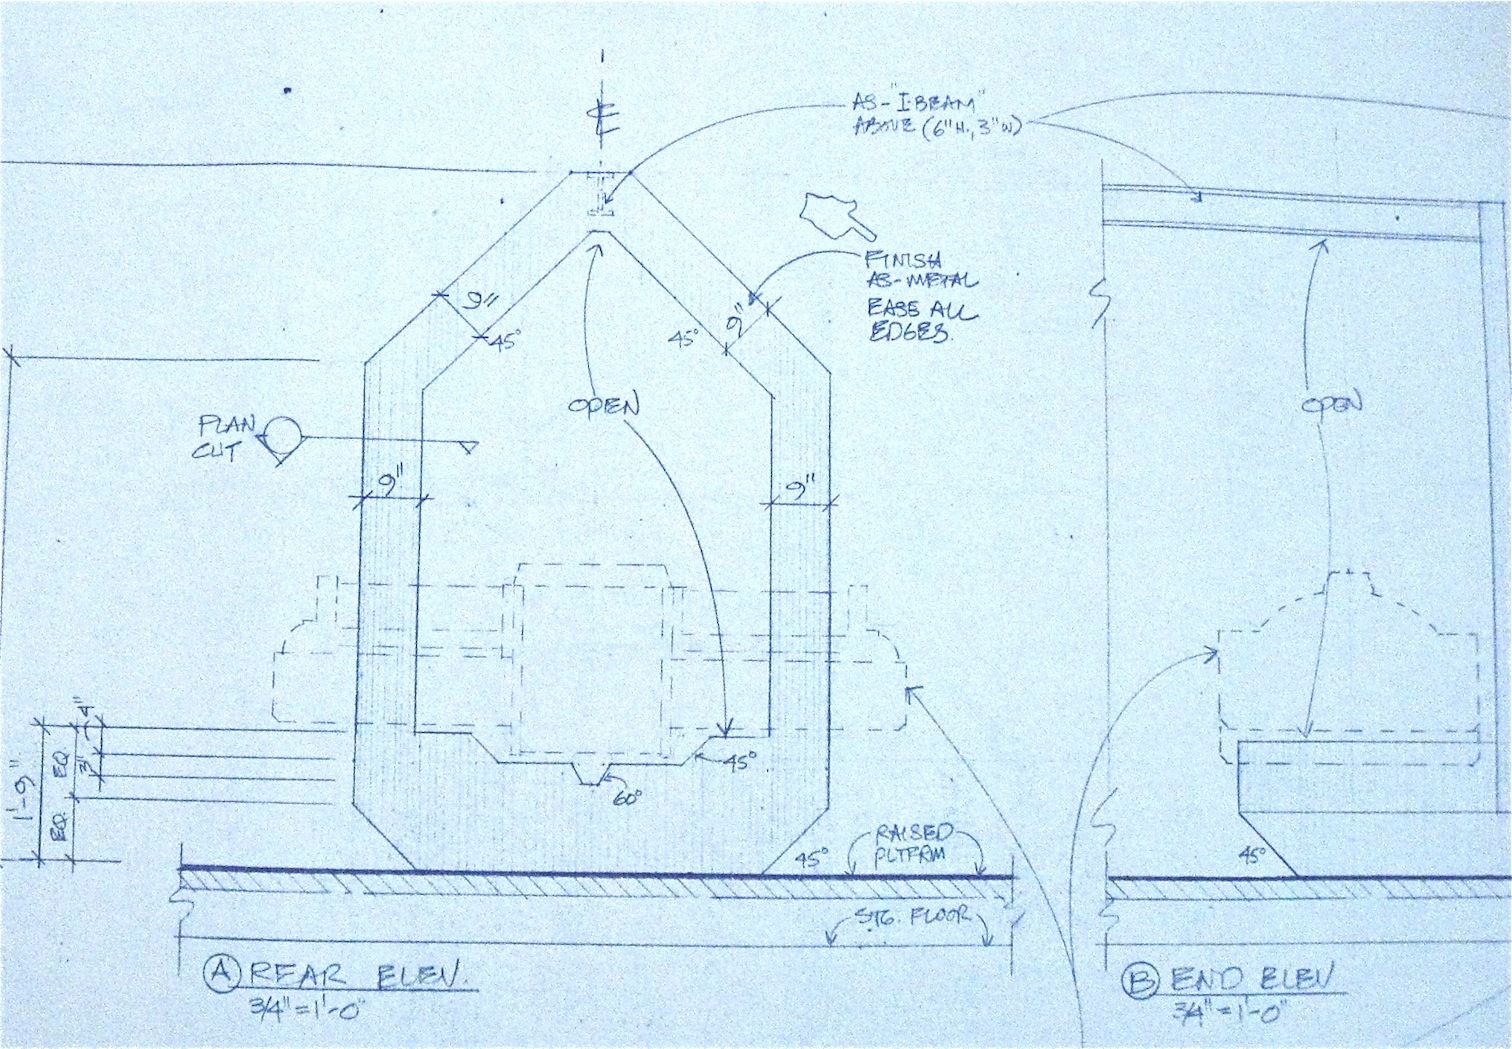 ℄
AS-"I-BEAM"
ABOVE (6"H., 3"W)
FINISH
AS-METAL
EASE ALL
EDGES.
9"
45°
45°
9"
OPEN
OPEN
PLAN
CUT
9"
9"
4"
3"
EQ
EQ.
1'-9"
45°
60°
45°
RAISED
PLTFRM
45°
STG. FLOOR
A REAR ELEV.
3/4"=1'-0"
B END ELEV
3/4"=1'-0"